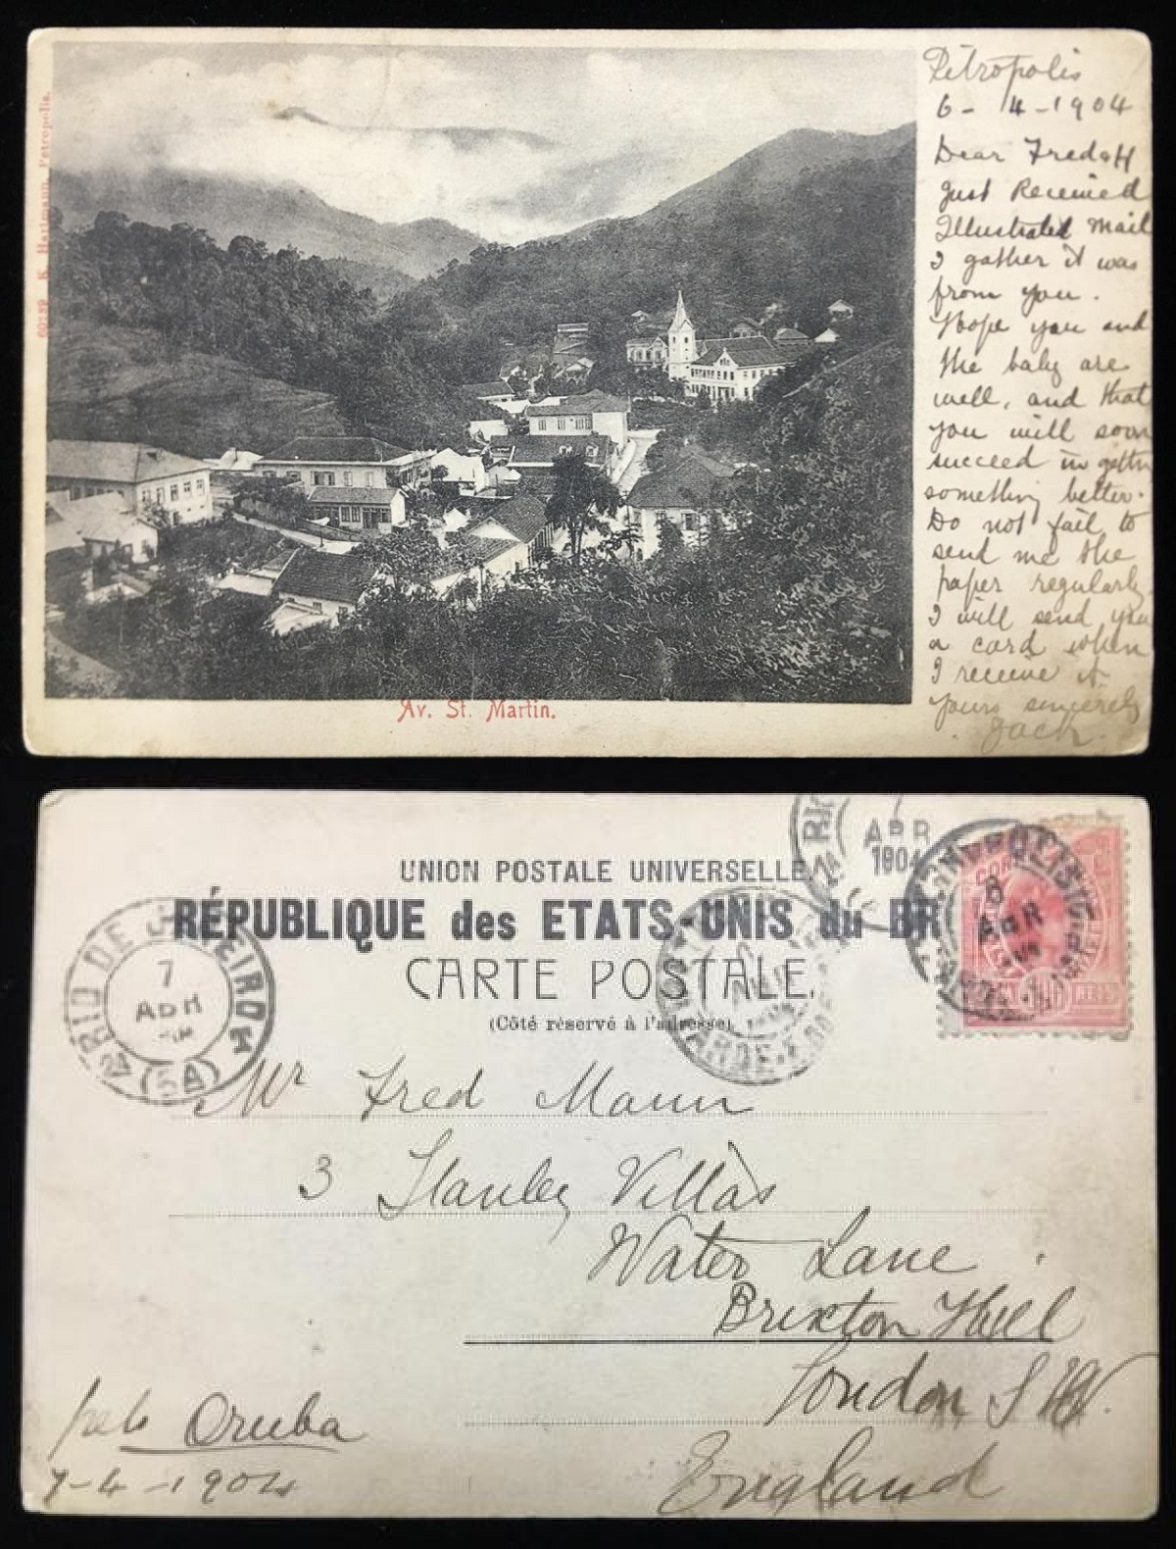 60189 K. Hartmann, Petropolis.
Petropolis
6 - 4 - 1904
Dear Fred
Just Received
Illustrated Mail
I gather it was
from you.
Hope you and
the baby are
well, and that
you will soon
succeed in gettn
something better.
Do not fail to
send me the
paper regularly.
I will send you
a card when
I receive it
yours sincerely
Jack.
Av. St. Martin.
UNION POSTALE UNIVERSELLE.
RÉPUBLIQUE des ETATS-UNIS du BR
CARTE POSTALE.
(Côté réservé à l'adresse).
RIO DE JANEIRO
7
ABR
(5A)
7
ABR
1904
8
ABR
Mr Fred Mann
3 Stanley Villas
Water Lane
Brixton Hill
London S W.
England
pelo Oruba
7-4-1904